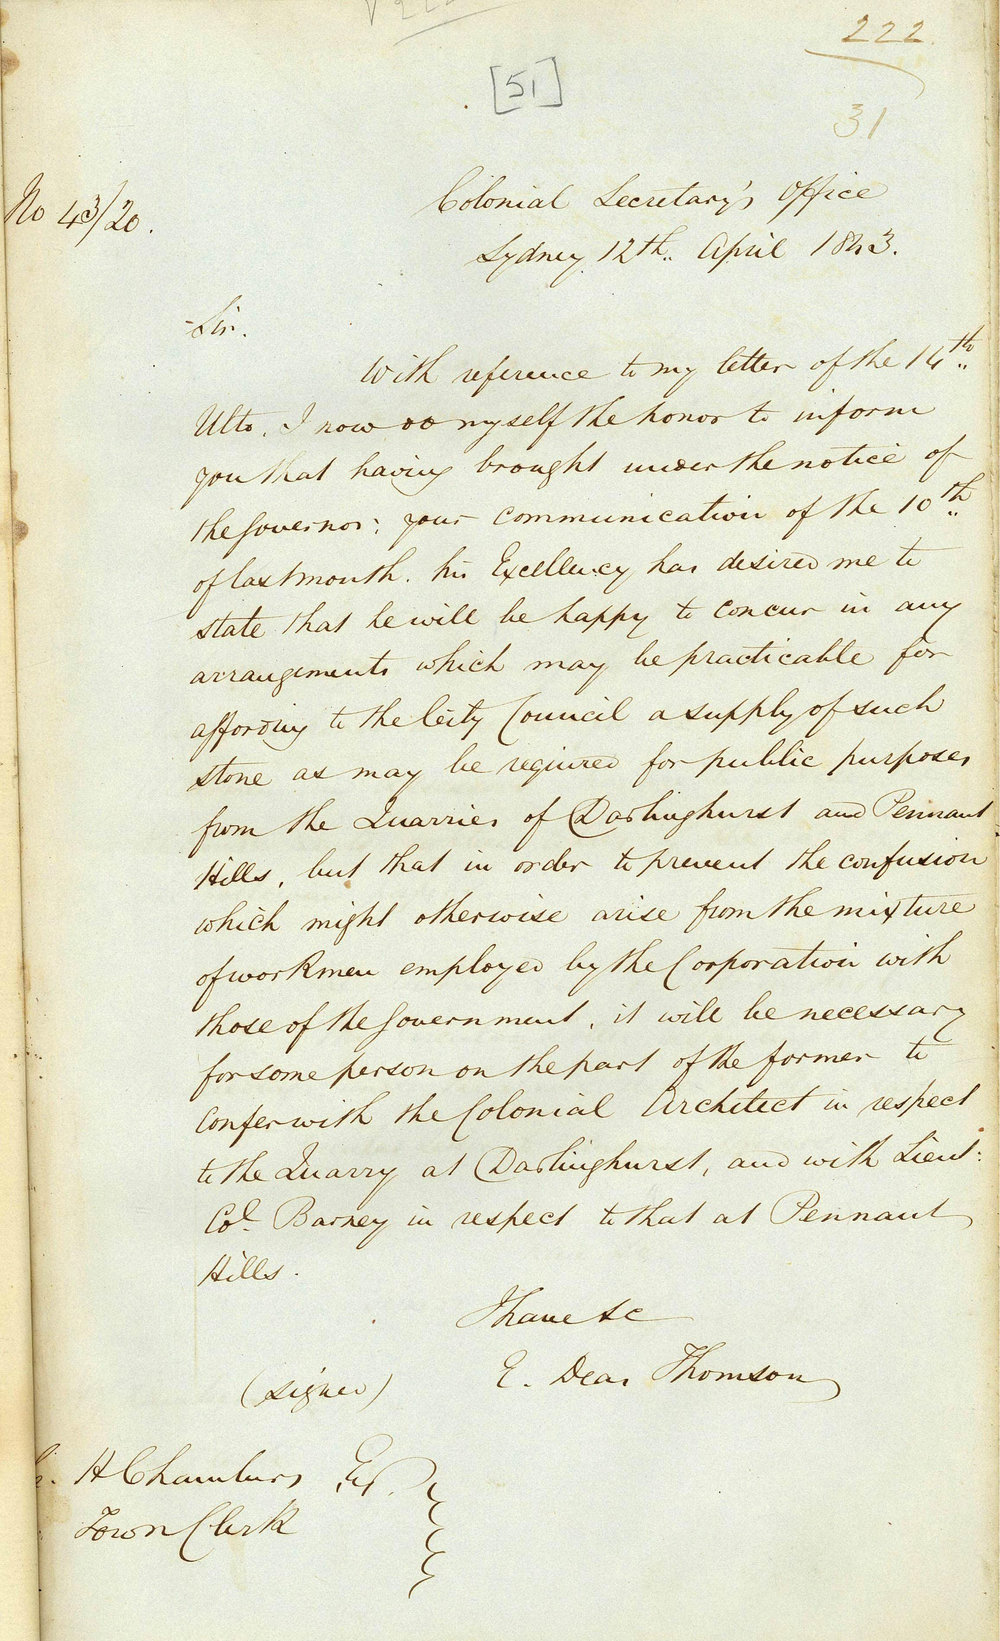 222
[51]
31
No 43/20.
Colonial Secretary's Office
Sydney 12th.. April 1843.
Sir.
With reference to my letter of the 14th..
Ulto. I now do myself the honor to inform
you that having brought under the notice of
the Governor; your communication of the 10th..
of last month. his Excellency has desired me to
state that he will be happy to concur in any
arrangements which may be practicable for
affording to the City Council a supply of such
stone as may be required for public purposes
from the Quarries of Darlinghurst and Pennant
Hills, but that in order to prevent the confusion
which might otherwise arise from the mixture
of workmen employed by the Corporation with
those of the Government, it will be necessary
for some person on the part of the former to
confer with the Colonial Architect in respect
to the Quarry at Darlinghurst, and with Lieut:
Col. Barney in respect to that at Pennant
Hills.
I have &c
(signed) E. Deas Thomson
H Chambers Esq.
Town Clerk